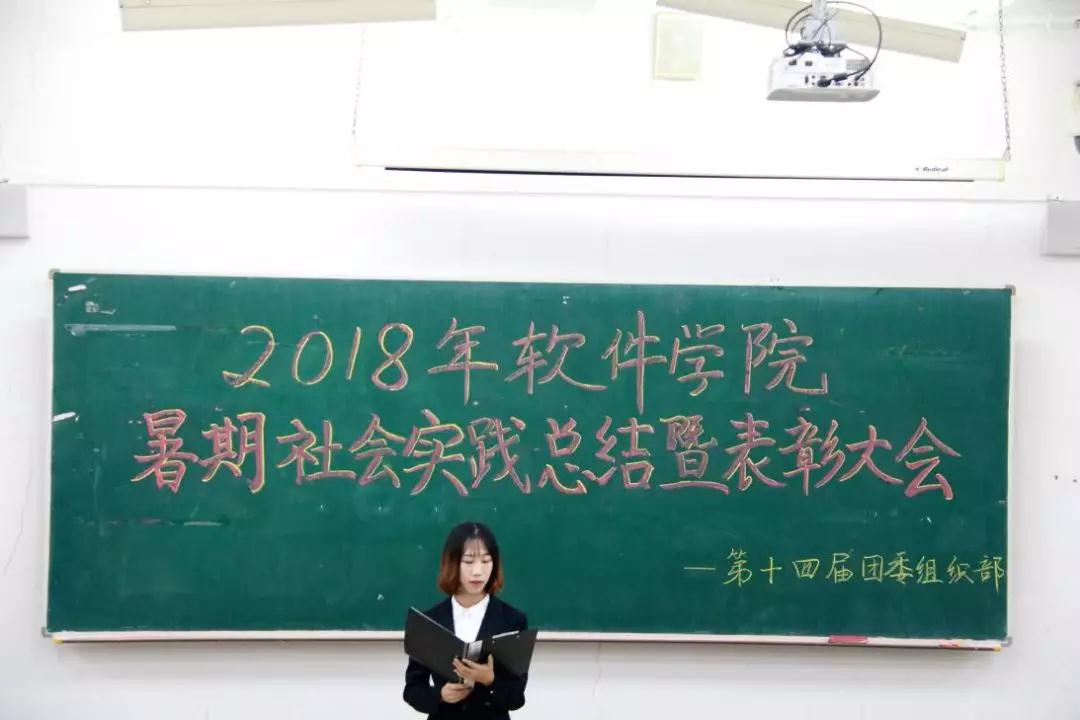 Redleaf
2018年软件学院
暑期社会实践总结暨表彰大会
—第十四届团委组织部